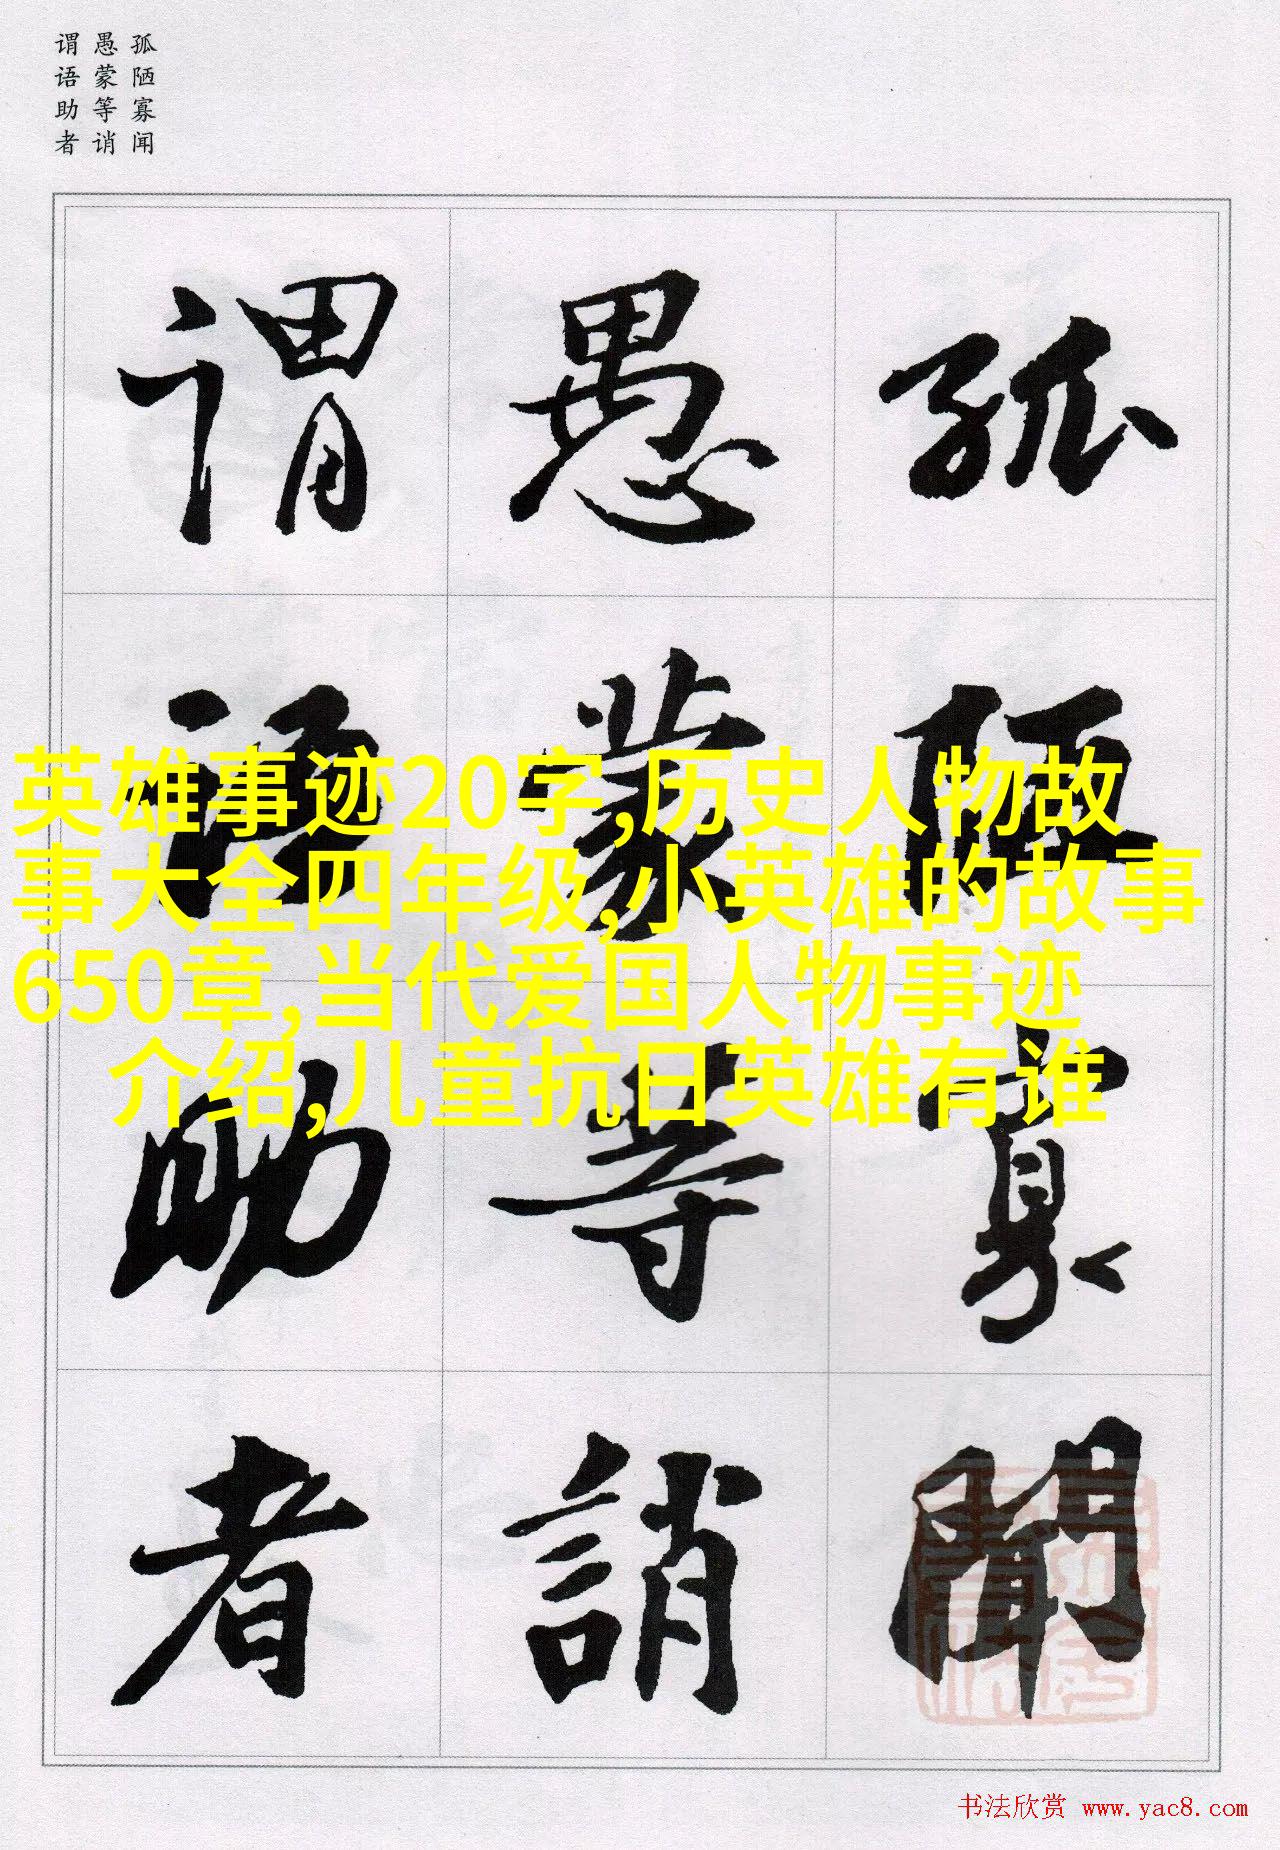 孤陋寡闻
愚蒙等诮
谓语助者
孤陋寡聞
愚蒙等誚
谓语助者
英雄事迹20字,历史人物故
事大全四年级,小英雄的故事
650章,当代爱国人物事迹
介绍,儿童抗日英雄有谁
书法欣赏 www.yac8.com